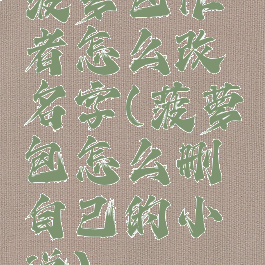 菠萝包作
者怎么改
名字(菠萝
包怎么删
自己的小
说)